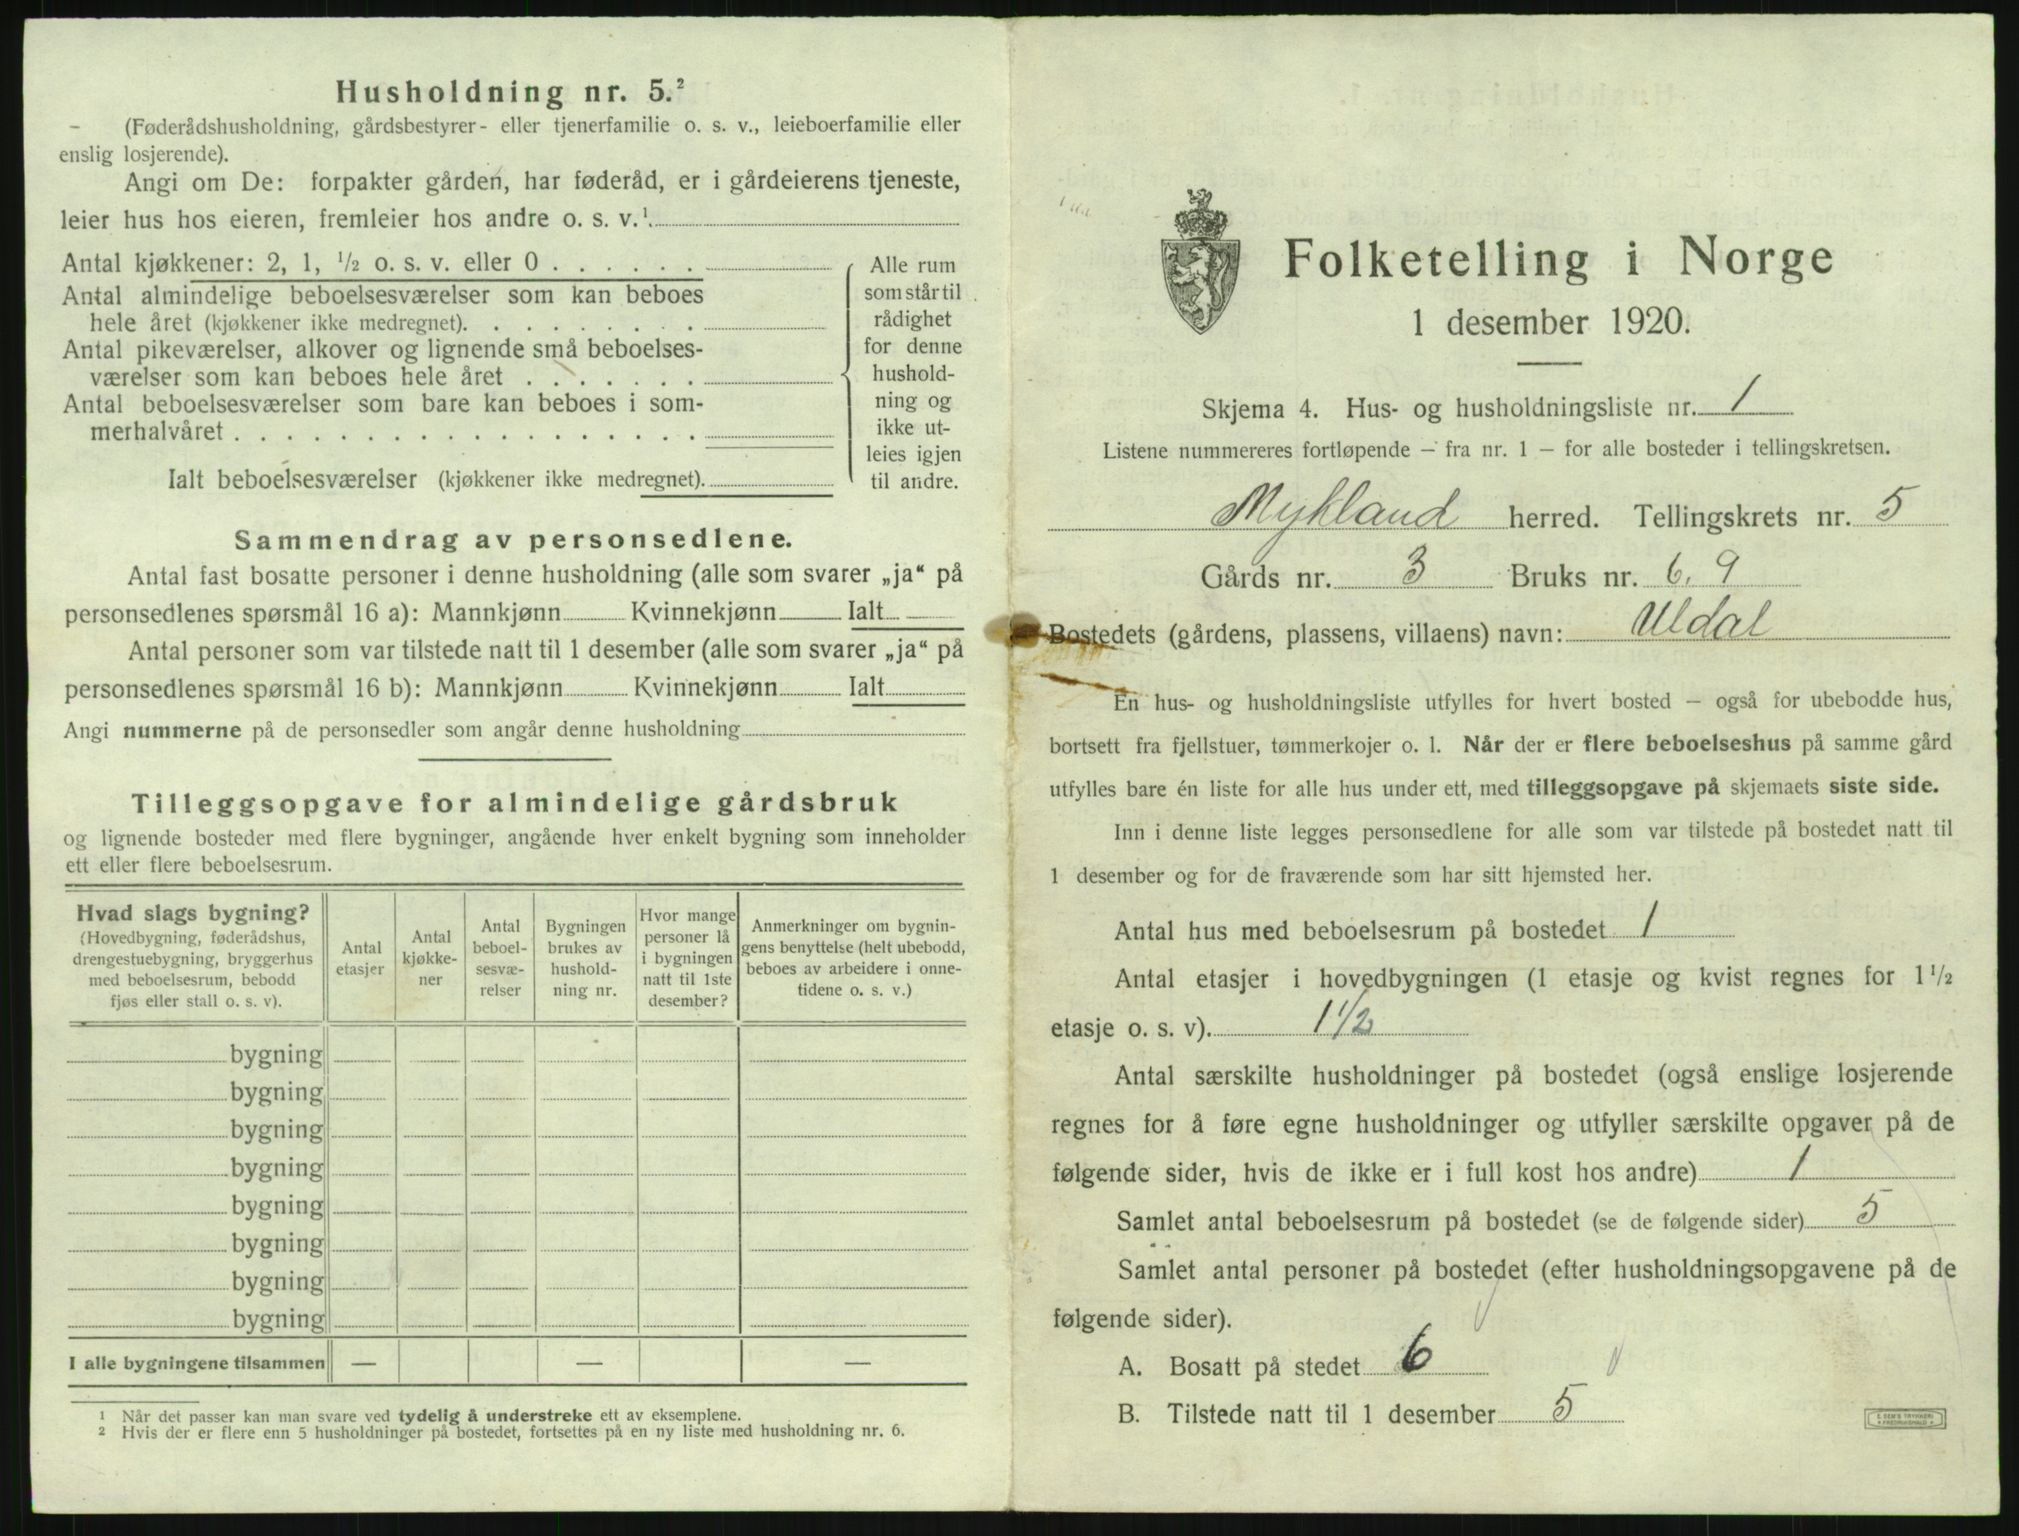 Husholdning nr. 5.²
(Føderådshusholdning, gårdsbestyrer- eller tjenerfamilie o. s. v., leieboerfamilie eller
enslig losjerende).
Angi om De: forpakter gården, har føderåd, er i gårdeierens tjeneste,
leier hus hos eieren, fremleier hos andre o. s. v.¹.
Antal kjøkkener: 2, 1, ½ o. s. v. eller 0 . . . . . .
Antal almindelige beboelsesværelser som kan beboes
hele året (kjøkkener ikke medregnet). . . . . . . . .
Antal pikeværelser, alkover og lignende små beboelses-
værelser som kan beboes hele året . . . . . . .
Antal beboelsesværelser som bare kan beboes i som-
merhalvåret . . . . . . . . . . . . . . . . . .
Ialt beboelsesværelser (kjøkkener ikke medregnet).
Alle rum
som står til
rådighet
for denne
hushold-
ning og
ikke ut-
leies igjen
til andre.
Sammendrag av personsedlene.
Antal fast bosatte personer i denne husholdning (alle som svarer „ja“ på
personsedlenes spørsmål 16 a): Mannkjønn Kvinnekjønn Ialt
Antal personer som var tilstede natt til 1 desember (alle som svarer „ja“ på
personsedlenes spørsmål 16 b): Mannkjønn Kvinnekjønn Ialt
Angi nummerne på de personsedler som angår denne husholdning
Tilleggsopgave for almindelige gårdsbruk
og lignende bosteder med flere bygninger, angående hver enkelt bygning som inneholder
ett eller flere beboelsesrum.
Hvad slags bygning?
(Hovedbygning, føderådshus,
drengestuebygning, bryggerhus
med beboelsesrum, bebodd
fjøs eller stall o. s. v).
Antal
etasjer
Antal
kjøkke-
ner
Antal
beboel-
sesvæ-
relser
Bygningen
brukes av
hushold-
ning nr.
Hvor mange
personer lå
i bygningen
natt til 1ste
desember?
Anmerkninger om bygnin-
gens benyttelse (helt ubebodd,
beboes av arbeidere i onne-
tidene o. s. v.)
bygning
bygning
bygning
bygning
bygning
bygning
bygning
bygning
I alle bygningene tilsammen — — —
¹ Når det passer kan man svare ved tydelig å understreke ett av eksemplene.
² Hvis der er flere enn 5 husholdninger på bostedet, fortsettes på en ny liste med husholdning nr. 6.
Folketelling i Norge
1 desember 1920.
Skjema 4. Hus- og husholdningsliste nr. 1
Listene nummereres fortløpende — fra nr. 1 — for alle bosteder i tellingskretsen.
Mykland herred. Tellingskrets nr. 5
Gårds nr. 3 Bruks nr. 6, 9
Bostedets (gårdens, plassens, villaens) navn: Uldal
En hus- og husholdningsliste utfylles for hvert bosted — også for ubebodde hus,
bortsett fra fjellstuer, tømmerkojer o. l. Når der er flere beboelseshus på samme gård
utfylles bare én liste for alle hus under ett, med tilleggsopgave på skjemaets siste side.
Inn i denne liste legges personsedlene for alle som var tilstede på bostedet natt til
1 desember og for de fraværende som har sitt hjemsted her.
Antal hus med beboelsesrum på bostedet 1
Antal etasjer i hovedbygningen (1 etasje og kvist regnes for 1½
etasje o. s. v). 1½
Antal særskilte husholdninger på bostedet (også enslige losjerende
regnes for å føre egne husholdninger og utfyller særskilte opgaver på de
følgende sider, hvis de ikke er i full kost hos andre) 1
Samlet antal beboelsesrum på bostedet (se de følgende sider) 5
Samlet antal personer på bostedet (efter husholdningsopgavene på de
følgende sider).
A. Bosatt på stedet 6
B. Tilstede natt til 1 desember 5